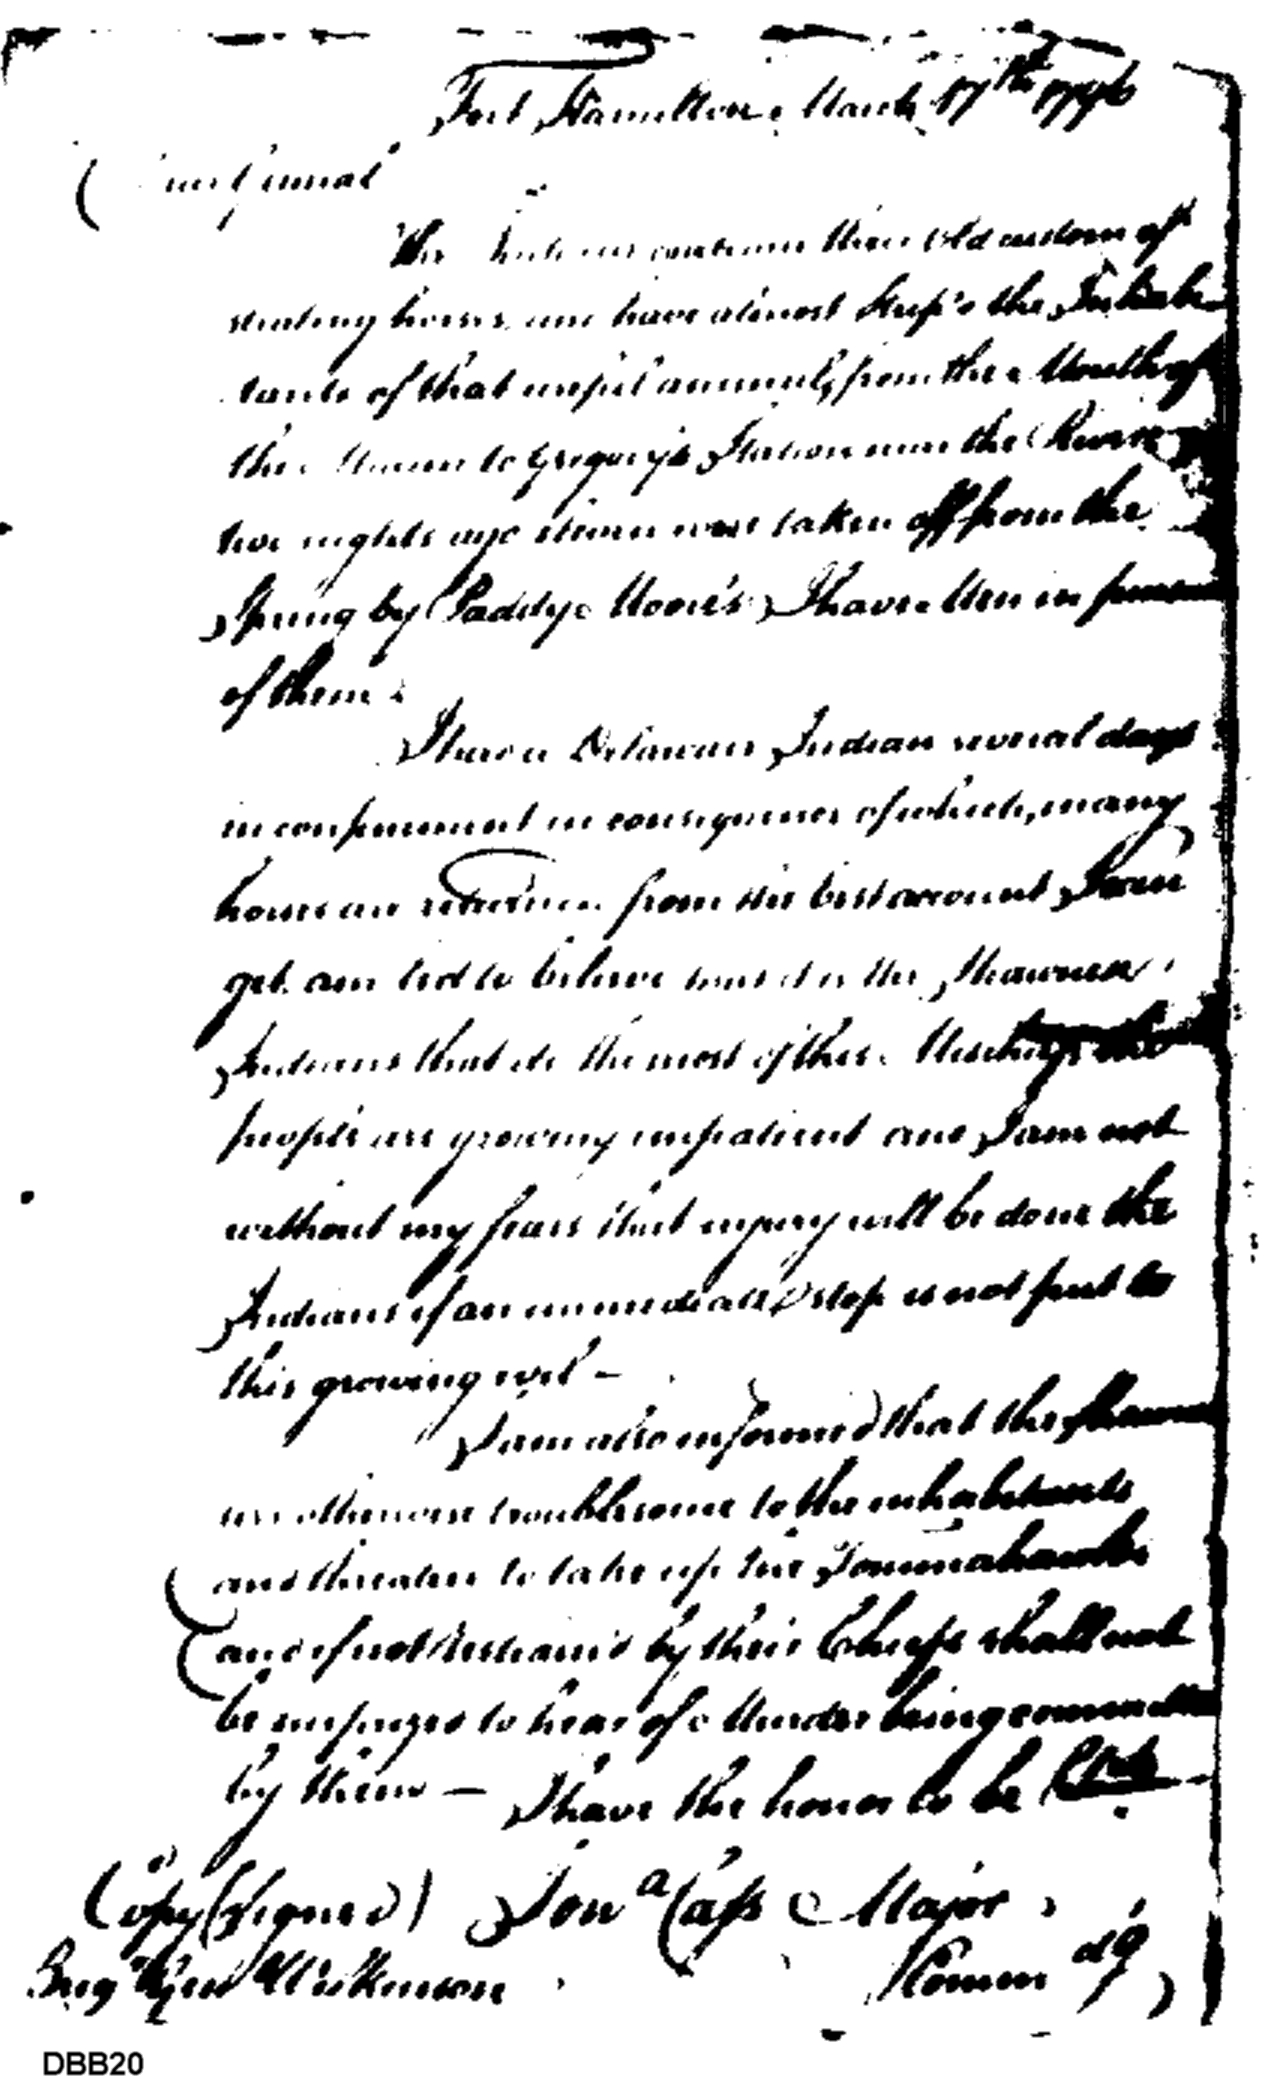 Fort Hamilton March 17th 1796
General
The Indians continue their old custom of
stealing horses, and have almost strip'd the Inhabi
tants of that usefull animal, from the Mouth of
the Miami to Gregory's Station near the River
two nights ago eleven were taken off from the
Spring by Paddy Moore's, I have Men in pursuit
of them.
I have a Delaware Indian several days
in confinement in consequence of which, many
horses are returned. from the best account I can
get am led to believe that it is the Shawnese
Indians that do the most of this Mischief, the
people are growing impatient and I am not
without my fears that injury will be done the
Indians if an immediate stop is not put to
this growing evil —
I am also informed that the Shawnese
are otherwise troublesome to the inhabitants
and threaten to take up the Tommahawke
and if not restrain'd by their Chiefs shall not
be surprized to hear of Murder being committed
by them — I have the honor to be &c
Copy (Signed) Jona Cass Major
Brig Gen Wilkinson Comm dg
DBB20